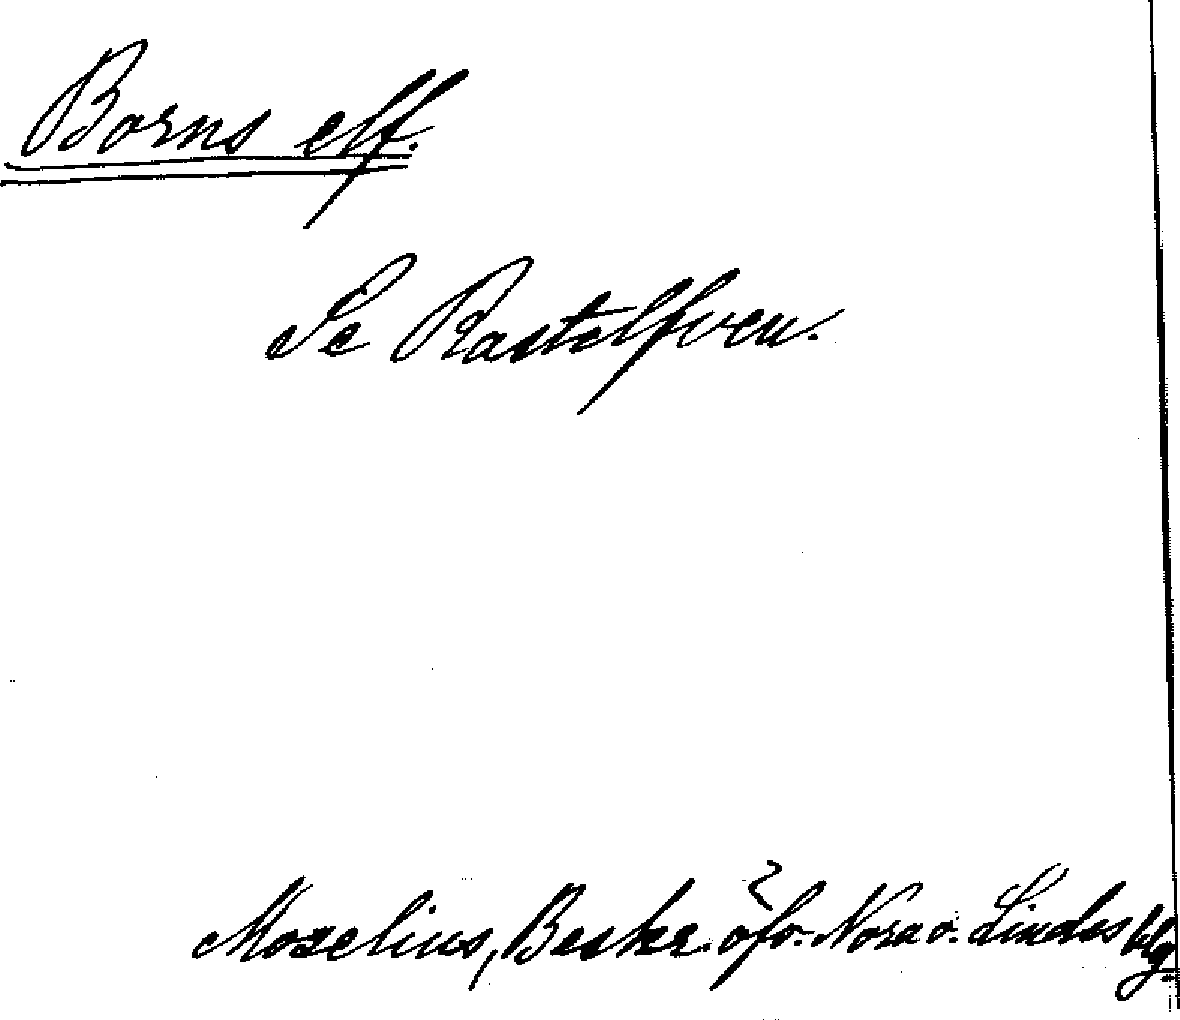 Borns elf.
Se Rastelfven.
Morelius, Beskr. öfv. Nora o. Lindes blg.